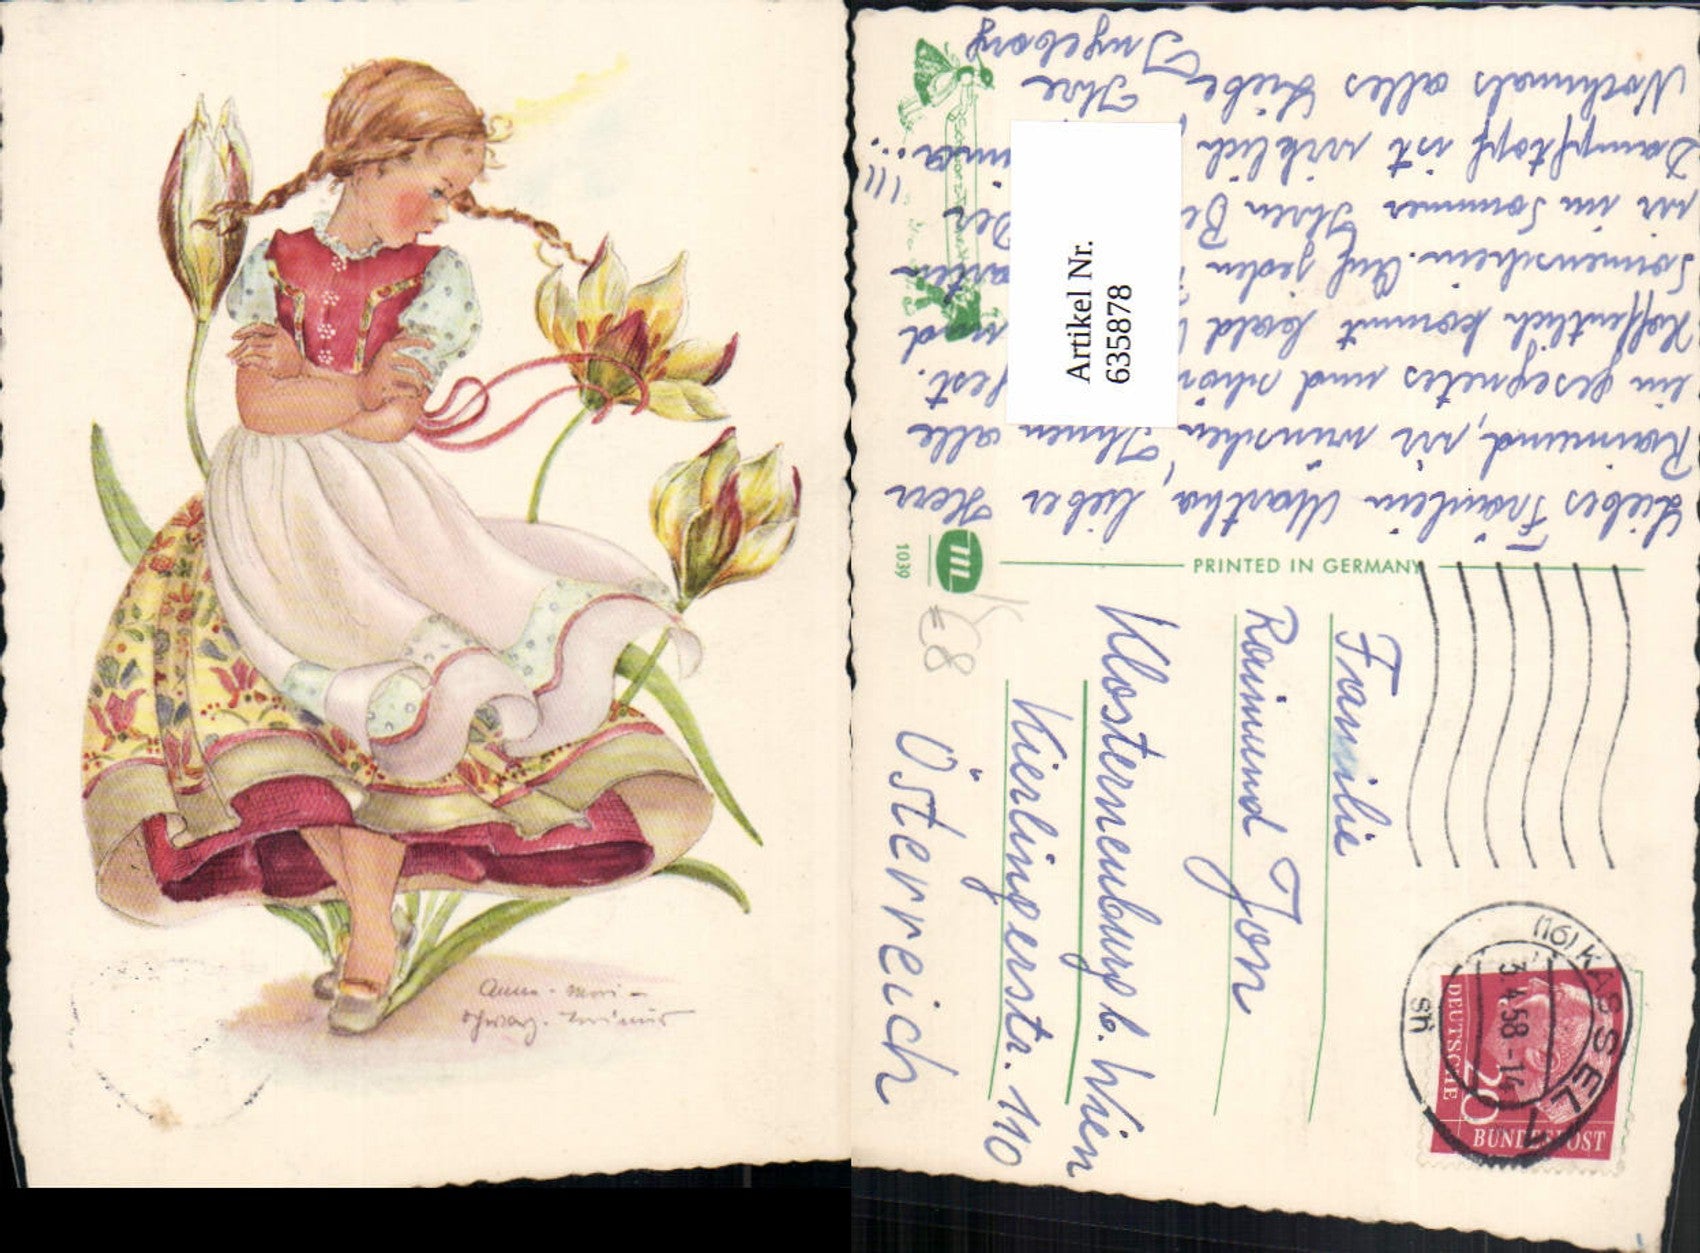 Anne-Mari-
Schwarz-Torinus
Artikel Nr.
635878
Liebes Fräulein Martha, lieber Herr
Raimund, wir wünschen Ihnen alle
ein gesegnetes und schön fest.
Hoffentlich kommt bald und
Sonnenschein. Auf jeden arten
wir im Sommer Ihren Be Der !!!
Dampftopf ist wirklich ima...
Nochmals alles Liebe Ihre
Ingeborg
1039
m
PRINTED IN GERMANY
Familie
Raimund Jon
Klosterneuburg b. Wien
Kierlingerstr. 110
Österreich
(16) KASSEL 7
3.4.58-14
sh
DEUTSCHE
BUNDESPOST
20